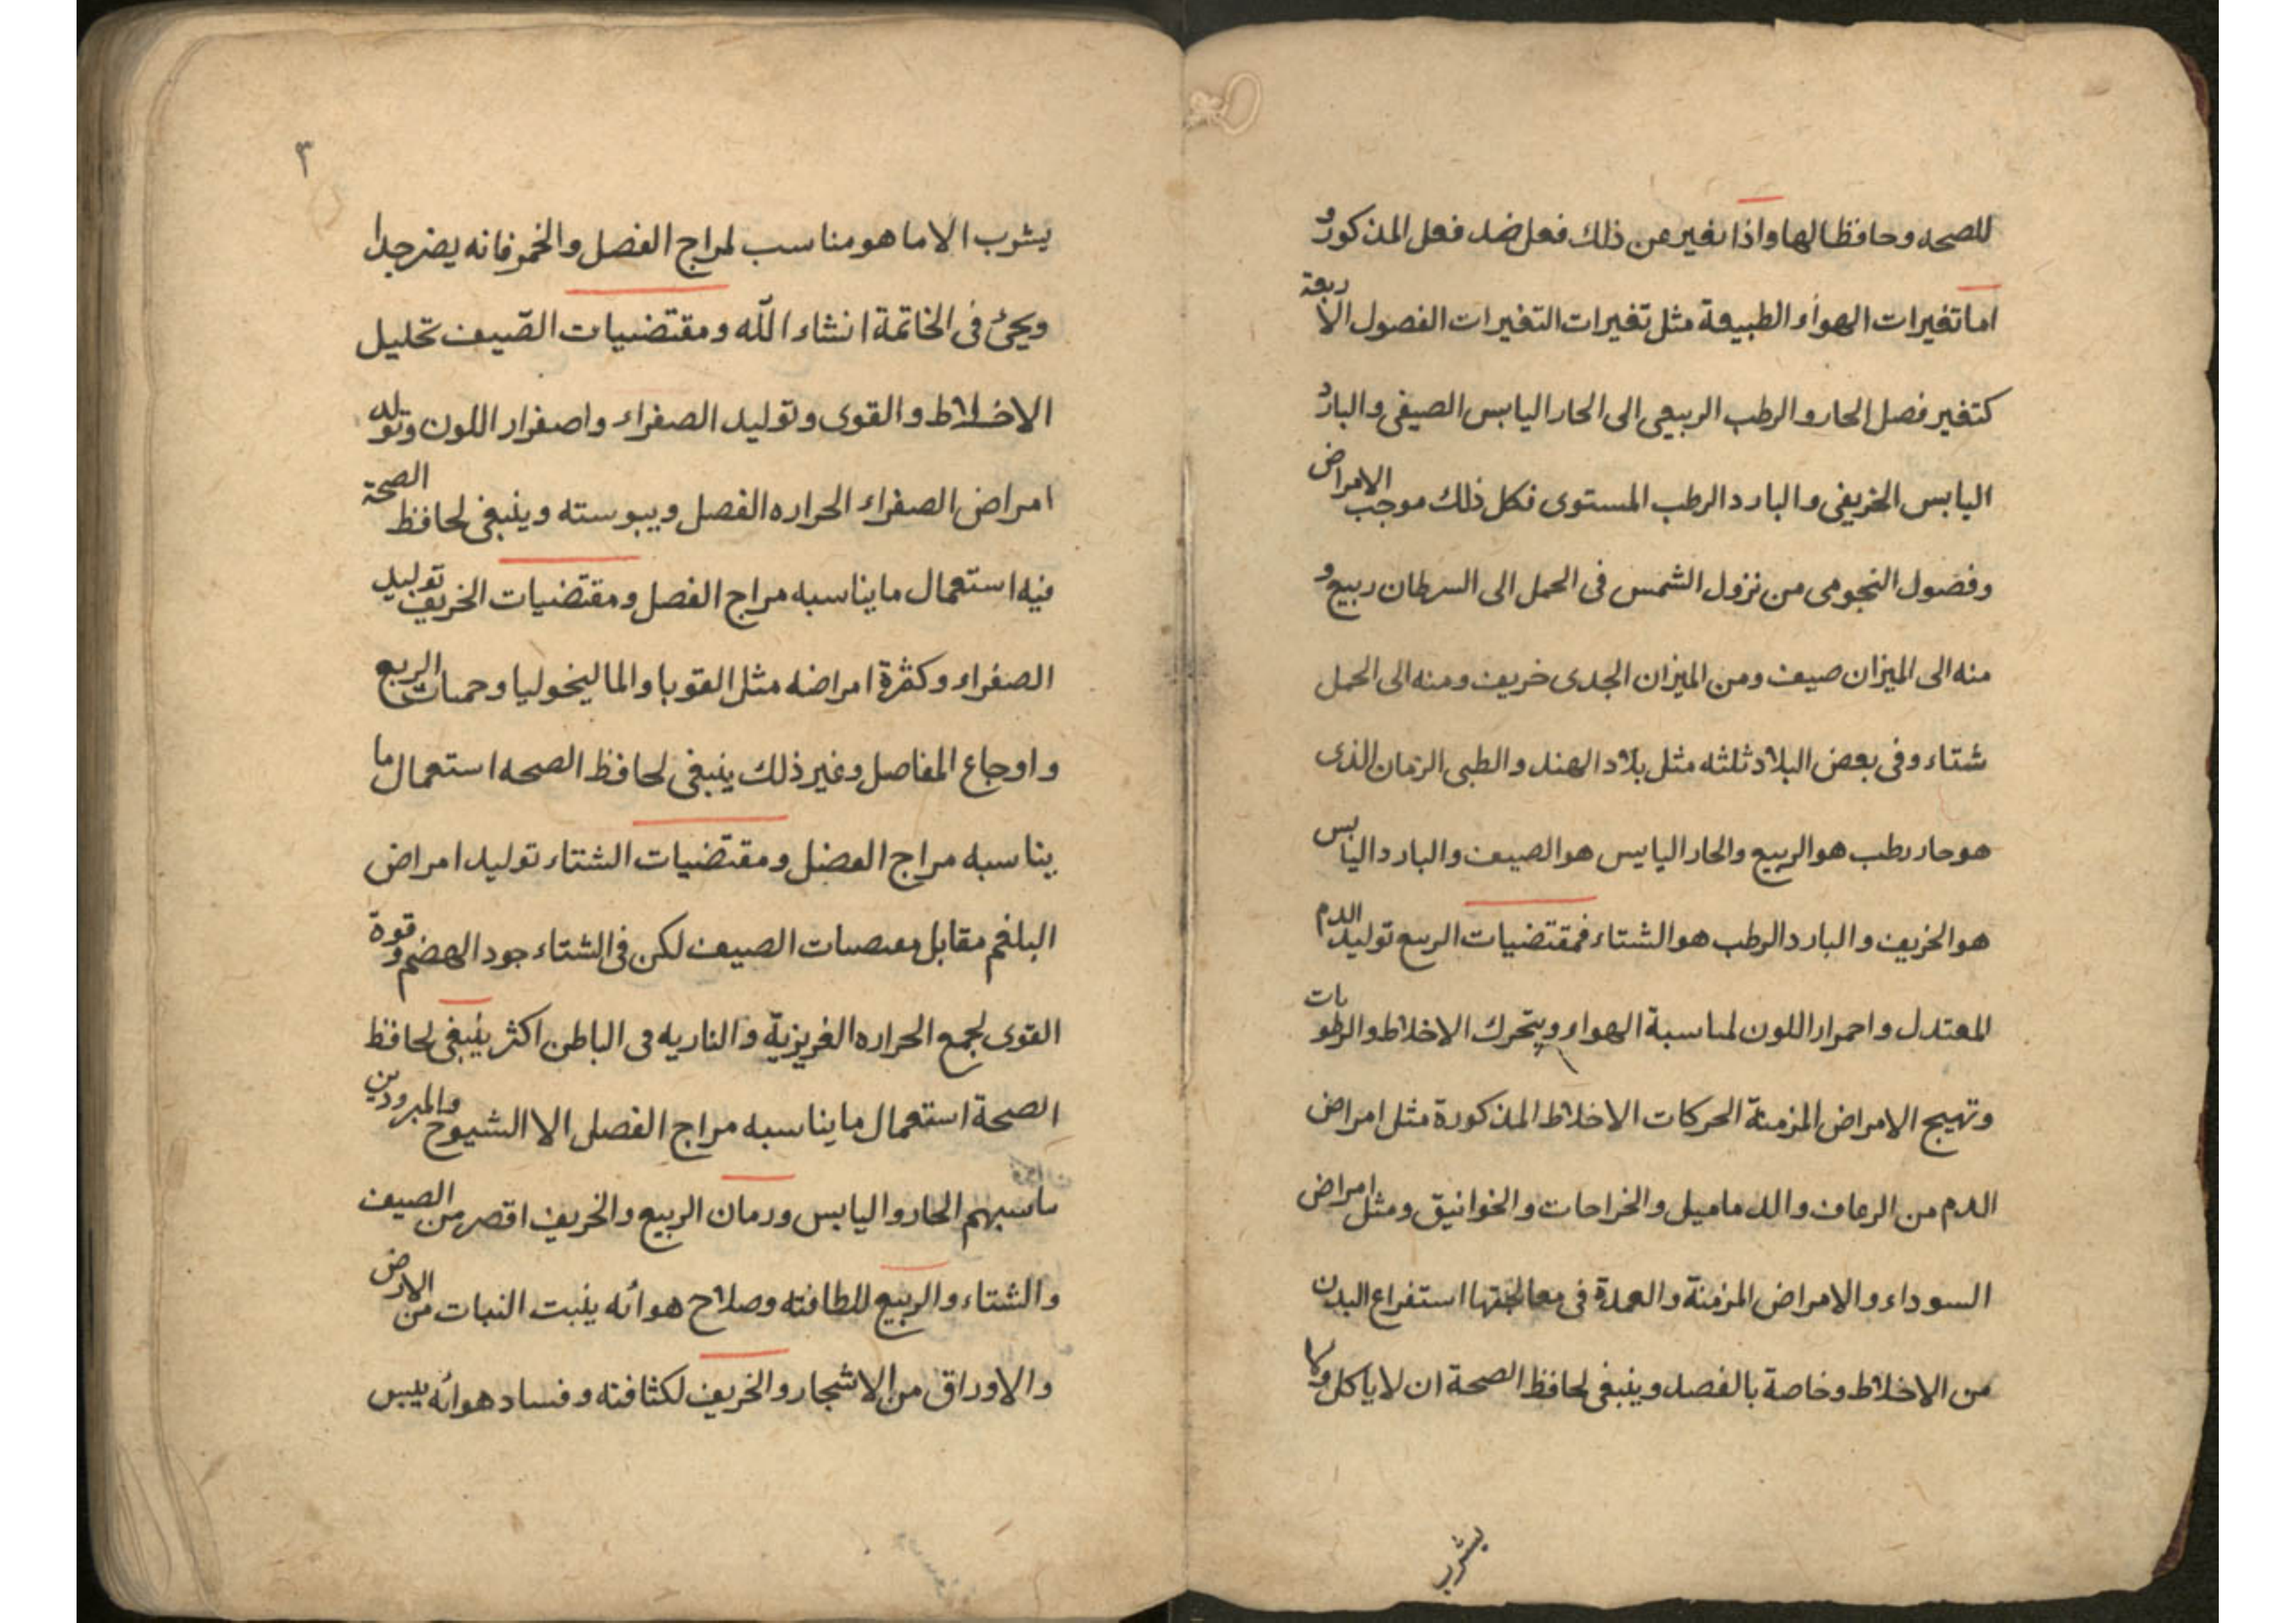 للصحه وحافظا لها واذا تغير عن ذلك فعل ضد فعل المذكور و
اما تغيرات الهواء الطبيعة مثل تغيرات التغيرات الفصول الاربعة
كتغير فصل الحار و الرطب الربيعى الى الحار اليابس الصيفى و البارد
اليابس الخريفى و البارد الرطب المستوى فكل ذلك موجب الامراض
وفصول النجومى من نزول الشمس فى الحمل الى السرطان ربيع و
منه الى الميزان صيف ومن الميزان الجدى خريف ومنه الى الحمل
شتاء وفى بعض البلاد ثلثه مثل بلاد الهند و الطبى الزمان الذى
هو حار رطب هو الربيع والحار اليابس هو الصيف و البارد اليابس
هو الخريف و البارد الرطب هو الشتاء فمقتضيات الربيع توليد الدم
المعتدل و احمرار اللون لمناسبة الهواء ويتحرك الاخلاط و الرطوبات
وتهيج الامراض المزمنة الحركات الاخلاط المذكورة مثل امراض
الدم من الرعاف و الدماميل و الخراجات و الخوانيق ومثل امراض
السوداء و الامراض المزمنة و العمدة فى معالجتها استفراغ البدن
من الاخلاط وخاصة بالفصد وينبغى لحافظ الصحة ان لا ياكل ولا
يشرب
٣
يشرب الا ما هو مناسب لمزاج الفصل و الخمر فانه يضر جدا
ويجئ فى الخاتمة انشاء الله ومقتضيات الصيف تحليل
الاخلاط و القوى وتوليد الصفراء واصفرار اللون وتولد
امراض الصفراء الحراره الفصل ويبوسته وينبغى لحافظ الصحة
فيه استعمال ما يناسبه مراج الفصل ومقتضيات الخريف توليد
الصفراء وكثرة امراضه مثل القوبا و الماليخوليا وحميات الربع
و اوجاع المفاصل وغير ذلك ينبغى لحافظ الصحه استعمال ما
يناسبه مراج الفصل ومقتضيات الشتاء توليد امراض
البلغم مقابل مقتضيات الصيف لكن فى الشتاء جود الهضم وقوة
القوى لجمع الحراره الغريزية و الناريه فى الباطن اكثر ينبغى لحافظ
الصحة استعمال ما يناسبه مراج الفصل الا الشيوخ والمبرودين
الحار و اليابس وزمان الربيع والخريف اقصر من الصيف
و الشتاء و الربيع للطافته وصلاح هوائه ينبت النبات من الارض
و الاوراق من الاشجار و الخريف لكثافته وفساد هوائه ييبس